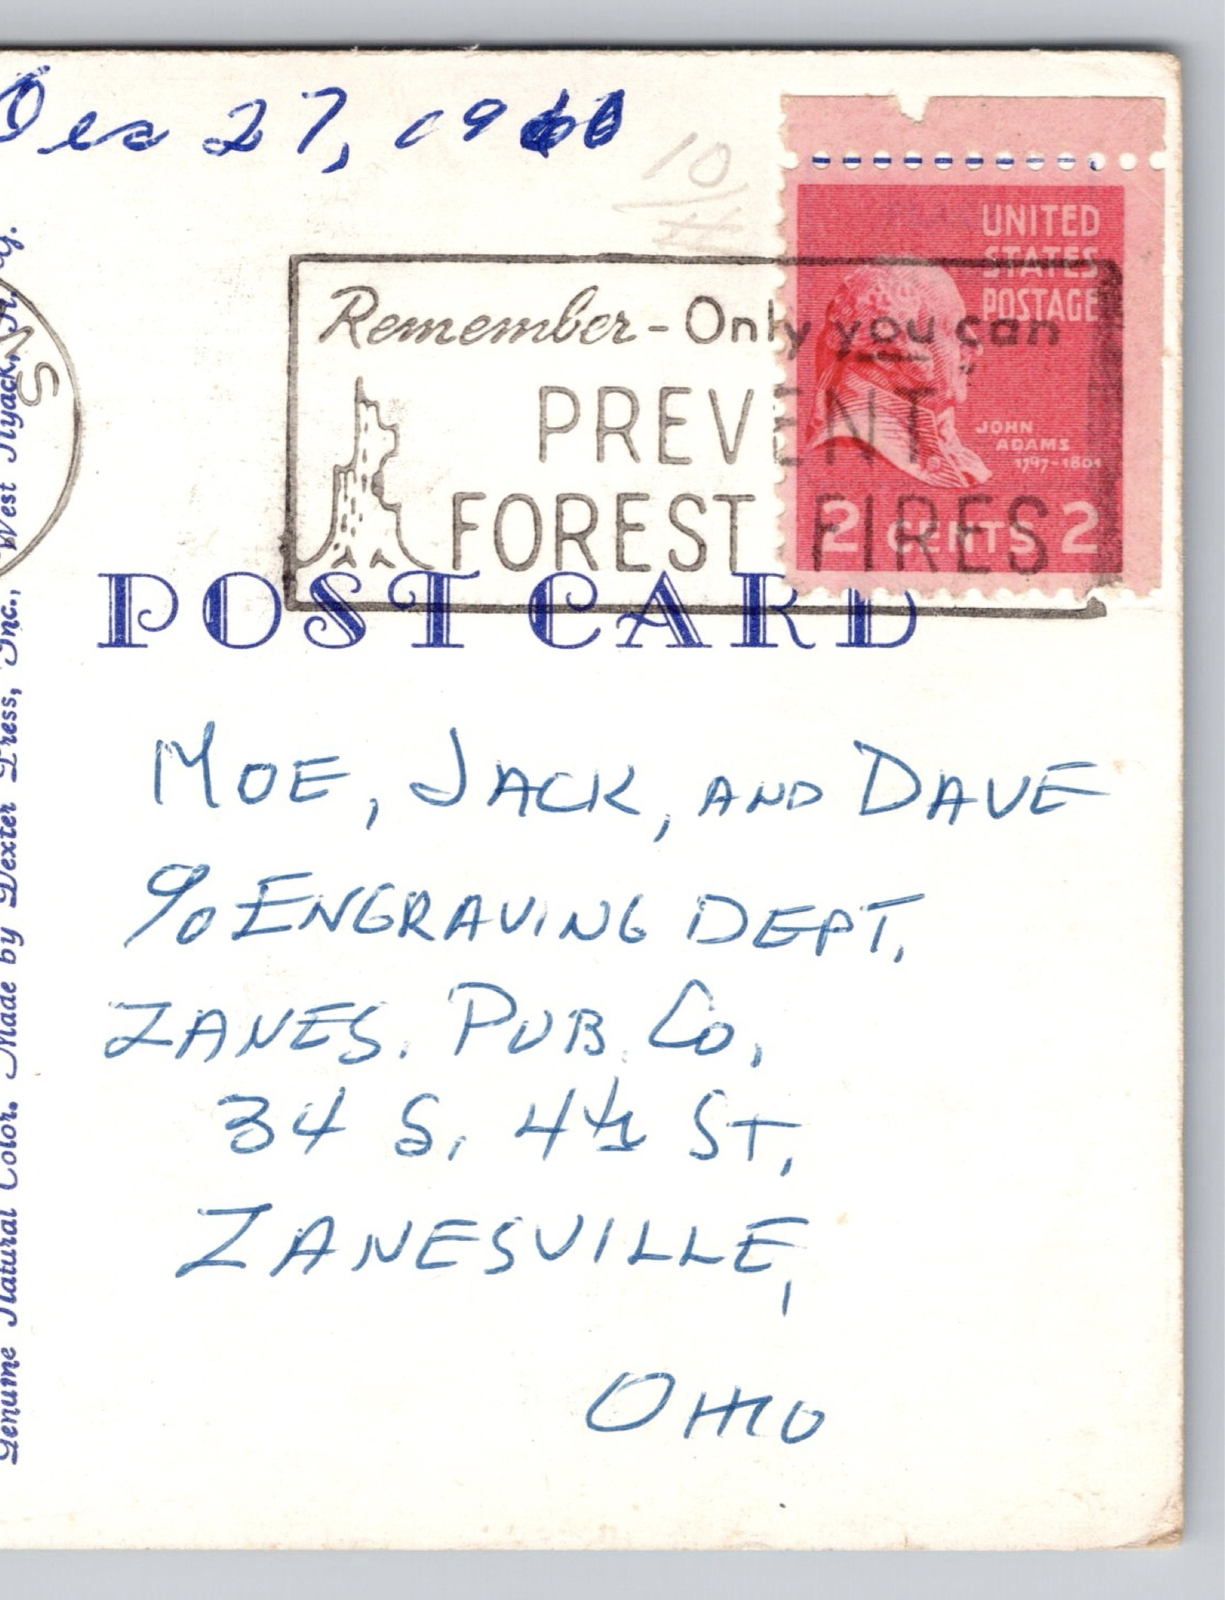 Dec 27, 19
10/
UNITED
STATES
POSTAGE
Remember - Only you can
PREVENT
FOREST FIRES
JOHN
ADAMS
1797-1801
2 CENTS 2
POST CARD
MOE, JACK, AND DAVE
% ENGRAVING DEPT.
ZANES. PUB. CO,
34 S. 4th ST,
ZANESVILLE,
OHIO
Genuine Natural Color. Made by Dexter Press, Inc., West Nyack, N. Y.